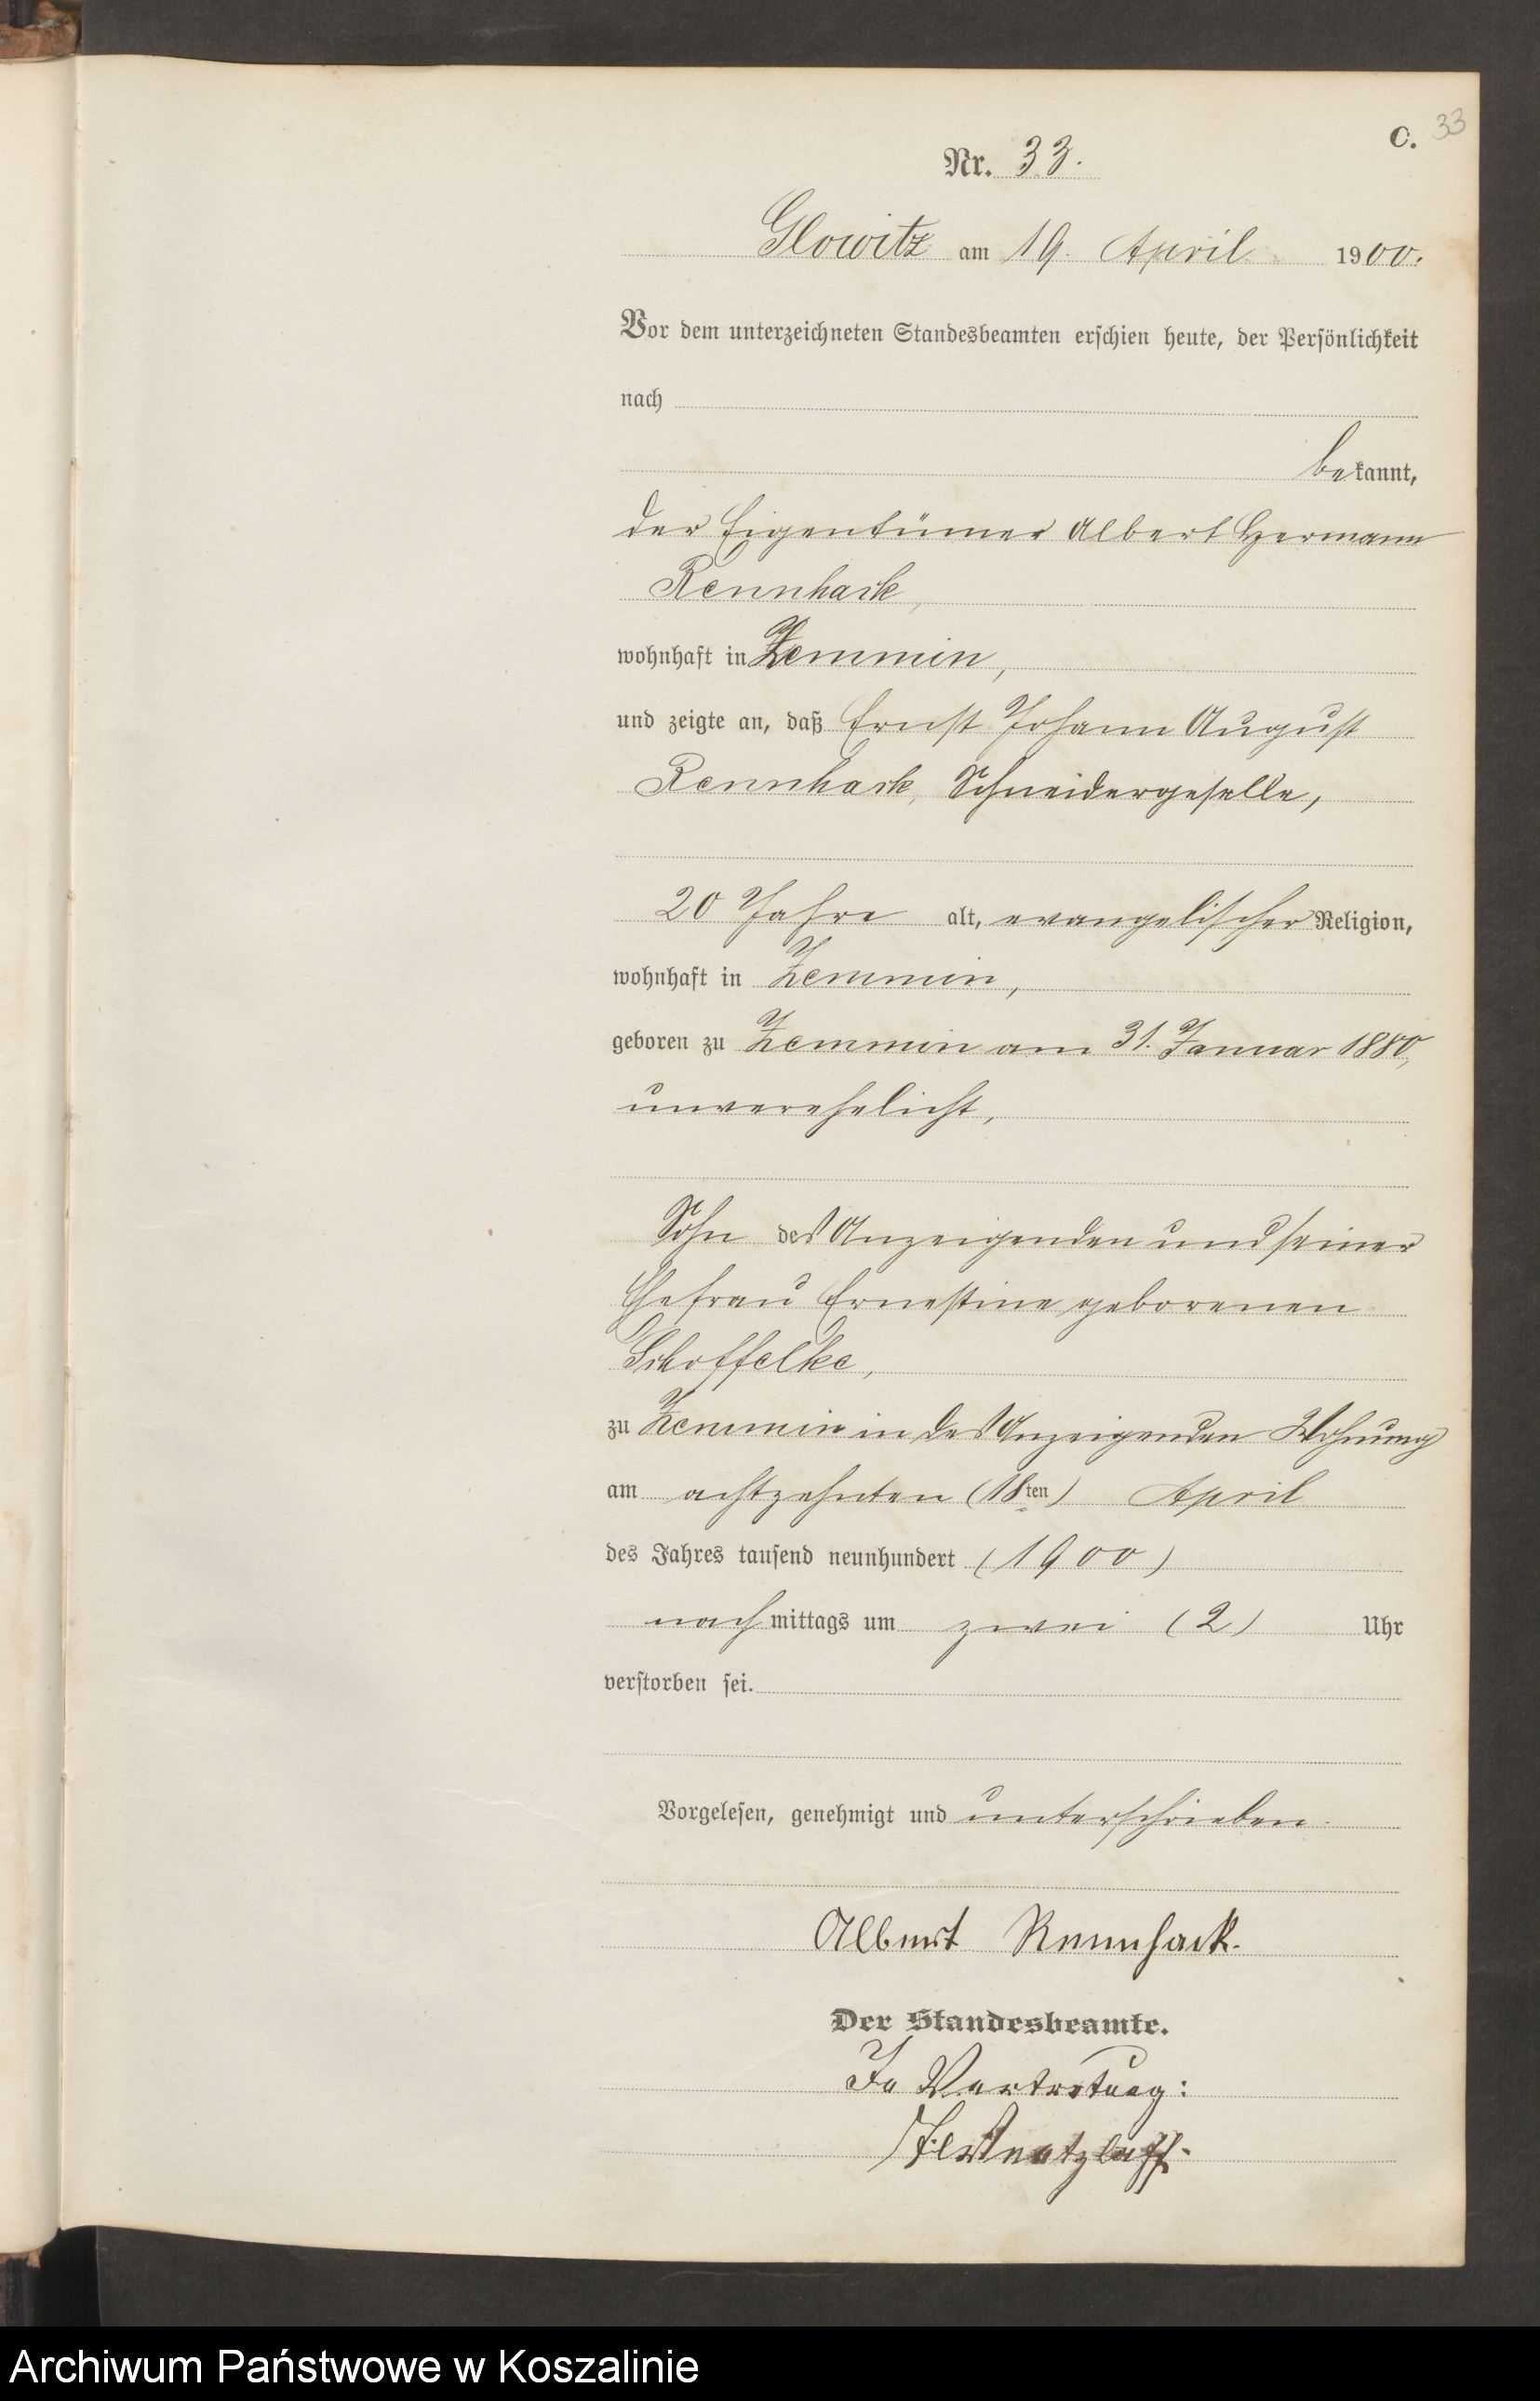 C. 33
Nr. 33.
Glowitz am 19. April 1900.
Vor dem unterzeichneten Standesbeamten erschien heute, der Persönlichkeit
nach
bekannt,
der Eigentümer Albert Hermann
Rennhack,
wohnhaft in Zemmin,
und zeigte an, daß Ernst Johann August
Rennhack, Schneidergeselle,
20 Jahre alt, evangelischer Religion,
wohnhaft in Zemmin,
geboren zu Zemmin am 31. Januar 1880,
unverehelicht,
Sohn des Anzeigenden und seiner
Ehefrau Ernestine geborenen
Schoffelke,
zu Zemmin in des Anzeigenden Wohnung
am achtzehnten (18ten) April
des Jahres tausend neunhundert (1900)
nachmittags um zwei (2) Uhr
verstorben sei.
Vorgelesen, genehmigt und unterschrieben.
Albert Rennhack.
Der Standesbeamte.
In Vertretung:
Archiwum Państwowe w Koszalinie